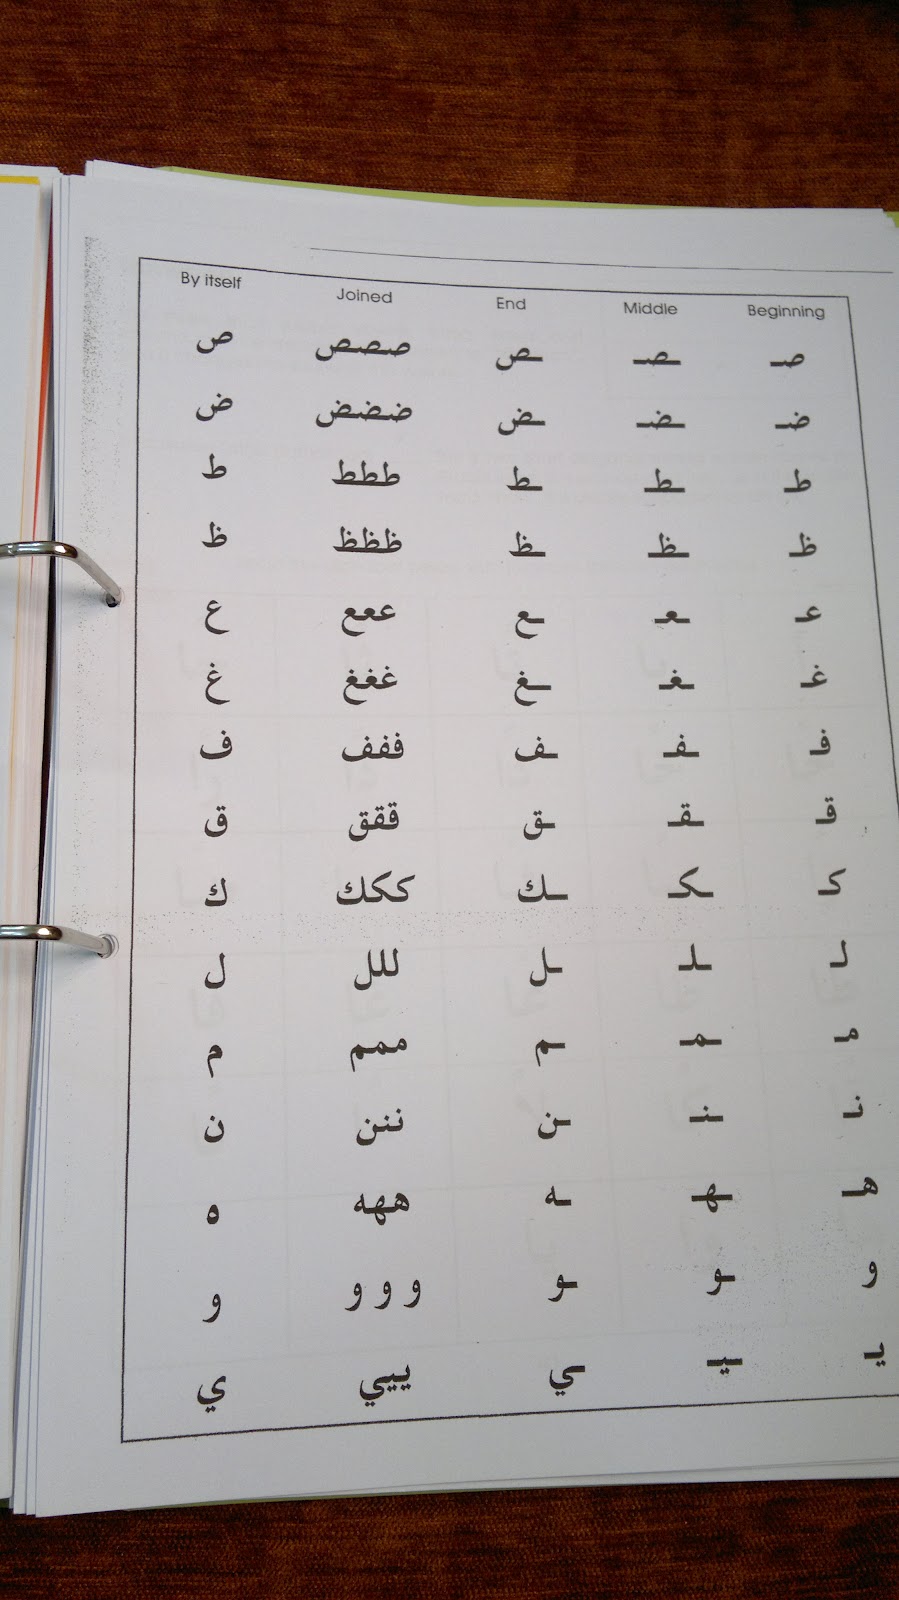 By itself Joined End Middle Beginning
ص صصص ـص ـصـ صـ
ض ضضض ـض ـضـ ضـ
ط ططط ـط ـطـ طـ
ظ ظظظ ـظ ـظـ ظـ
ع ععع ـع ـعـ عـ
غ غغغ ـغ ـغـ غـ
ف ففف ـف ـفـ فـ
ق ققق ـق ـقـ قـ
ك ككك ـك ـكـ كـ
ل للل ـل ـلـ لـ
م ممم ـم ـمـ مـ
ن ننن ـن ـنـ نـ
ه ههه ـه ـهـ هـ
و و و و ـو ـو و
ي ييي ـي ـيـ يـ